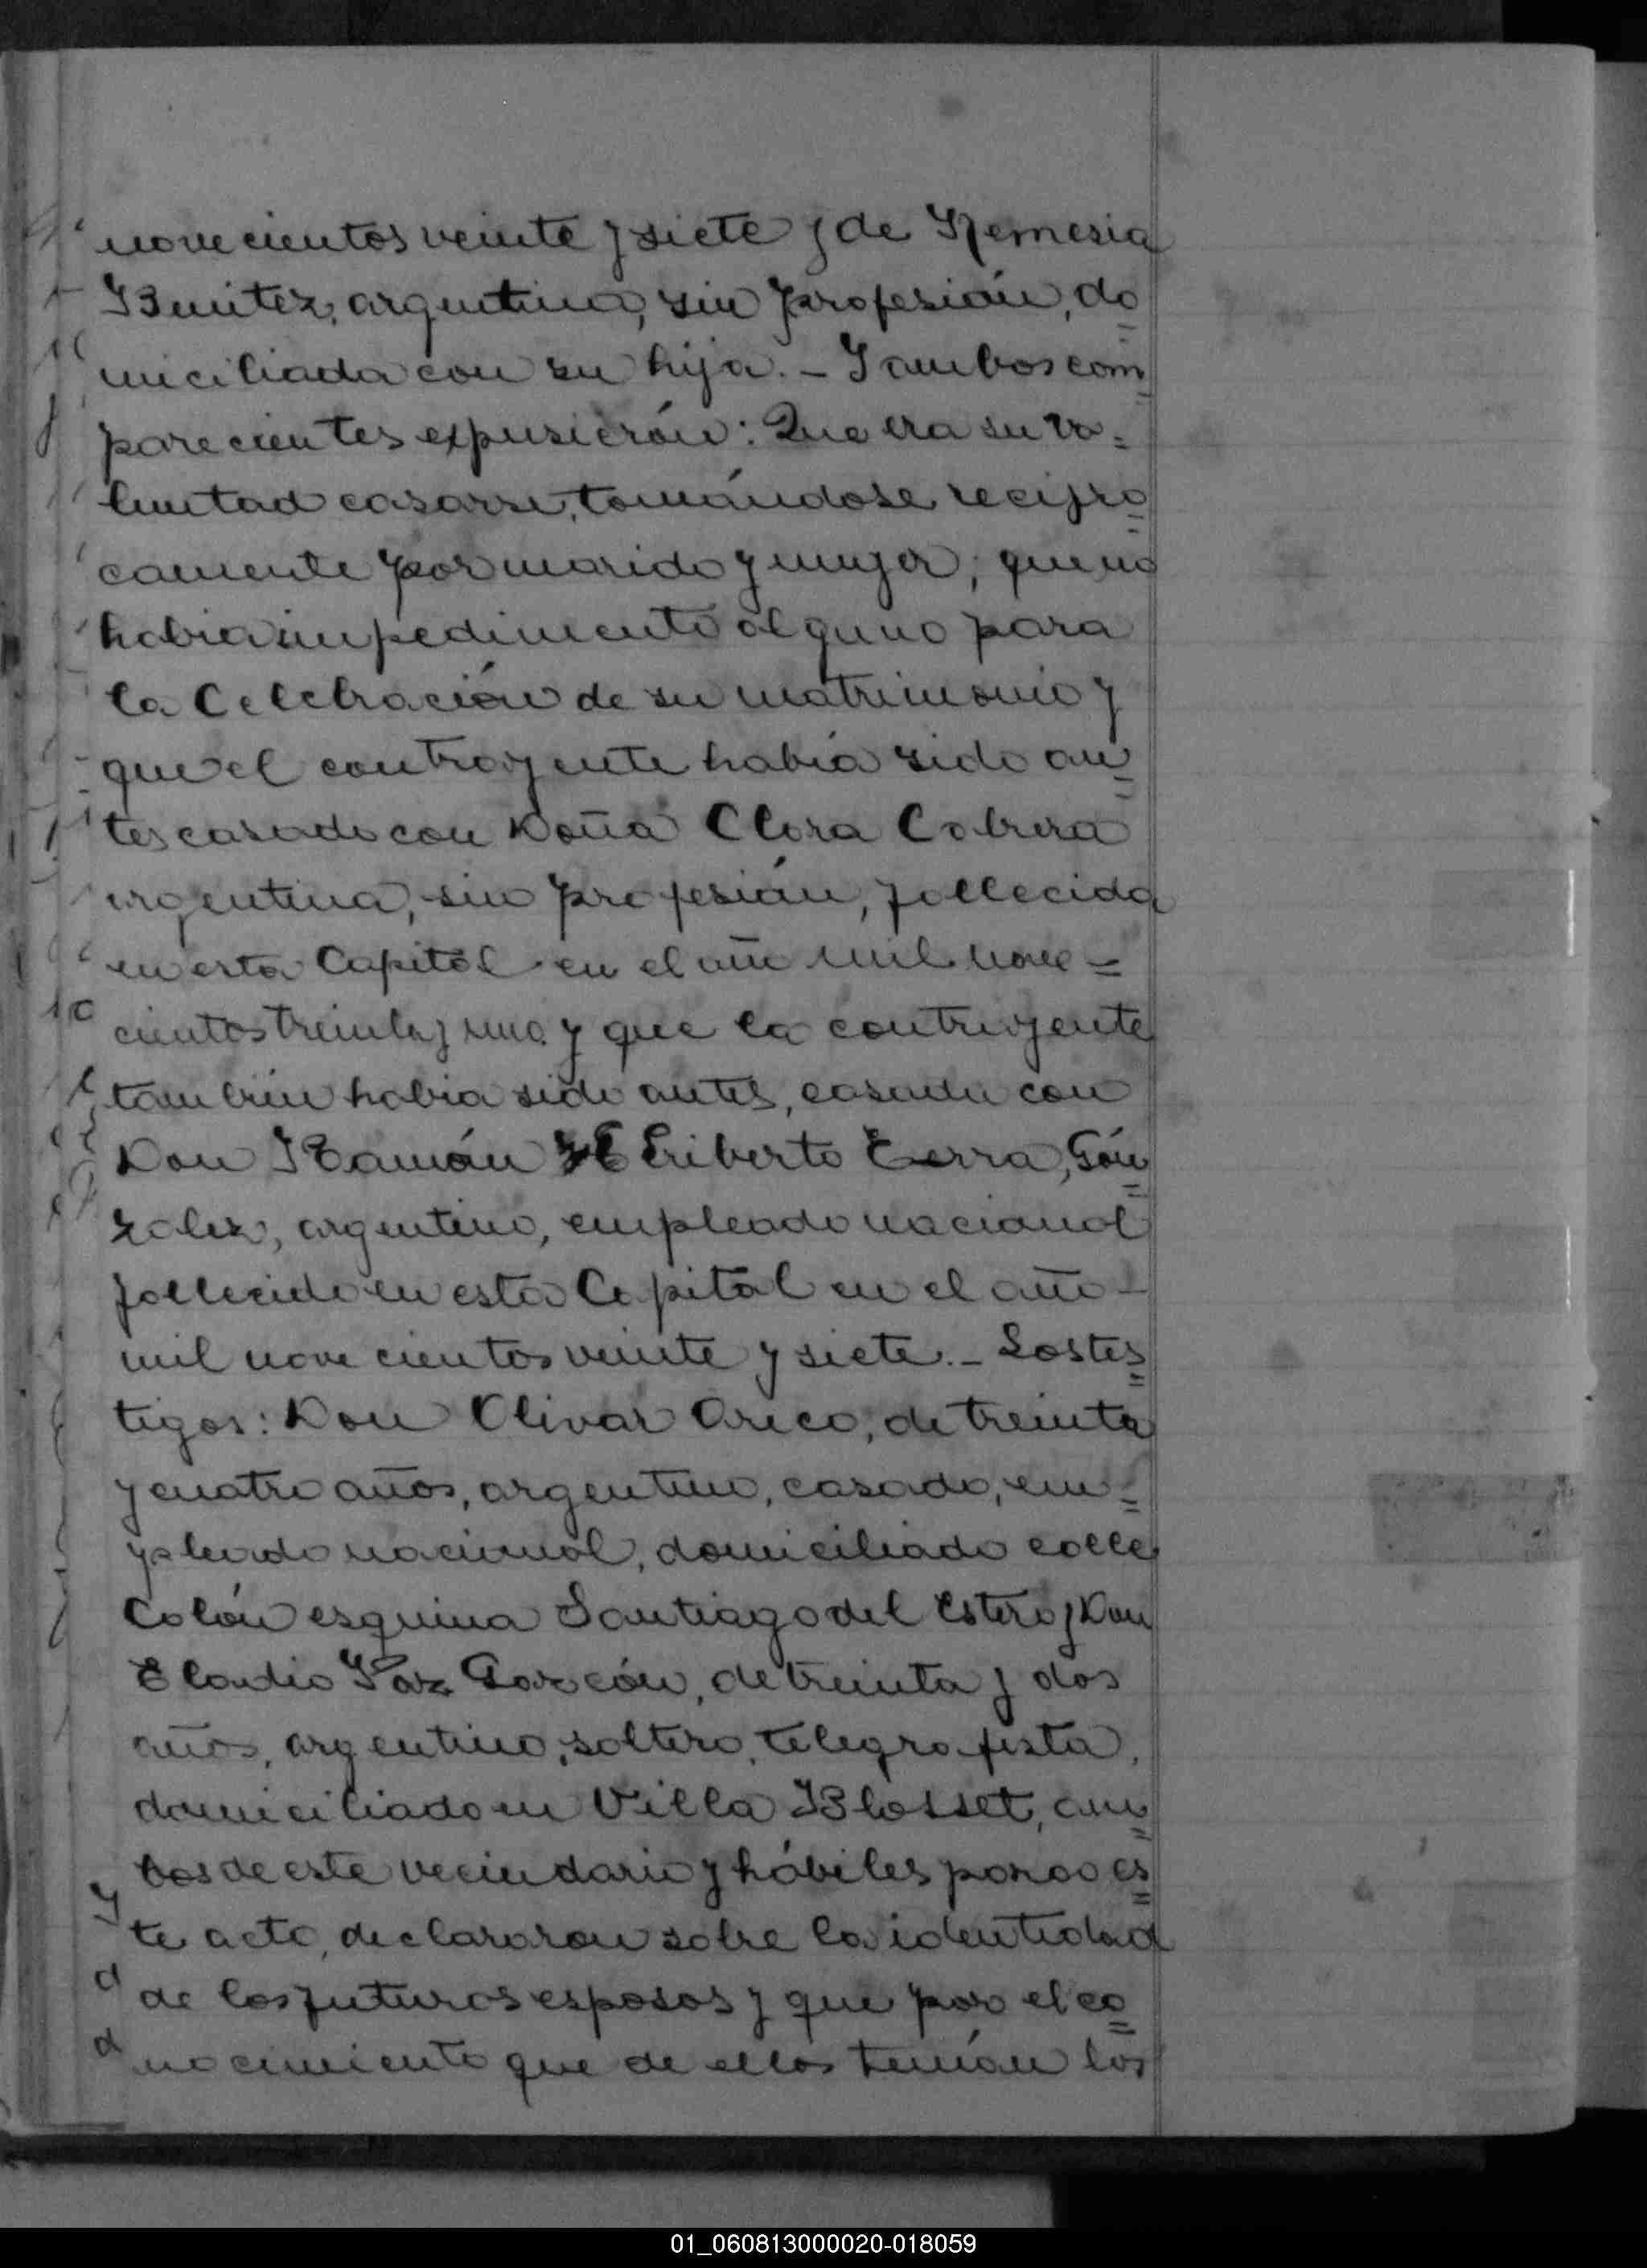 novecientos veinte y siete y de Nemesia
Benitez, argentina, sin profesión, do
miciliada con su hija. - Y ambos com
parecientes expusierón: Que era su vo=
luntad casarse, tomándose recipro
camente por marido y mujer; que no
habia impedimento alguno para
la Celebración de su matrimonio y
que el contrayente había sido an
tes casado con Doña Clara Cabrera
argentina, sin profesión, fallecida
en esta Capital en el año mil nove=
cientos treinta y uno y que la contrayente
tambien habia sido antes, casada con
Don Ramón Eriberto Erra, Gón
zalez, argentino, empleado nacional
fallecido en esta Capital en el año -
mil novecientos veinte y siete. - Los tes
tigos: Don Olivar Orico, de treinta
y cuatro años, argentino, casado, em=
pleado nacional, domiciliado calle
Colón esquina Santiago del Estero y Don
Claudio Paz Garcón, de treinta y dos
años, argentino, soltero, telegrafista,
domiciliado en Villa Blosset, am
bos de este vecindario y hábiles para es
te acto, declararon sobre la identidad
de los futuros esposos y que por el co
nocimiento que de ellos tenían los
01_060813000020-018059